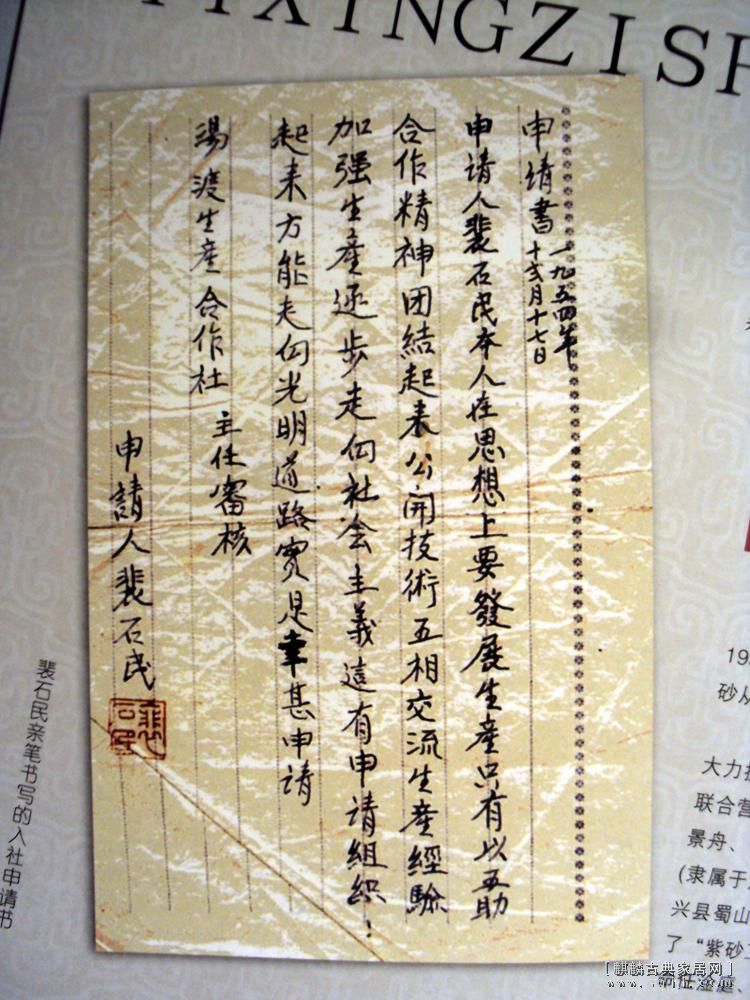 IXINGZISH
申请書 一九五四年
十弍月十七日
申请人裴石民本人在思想上要發展生產只有以五助
合作精神团結起来公開技術五相交流生產經驗
加强生產逐步走向社会主義這有申请組織!
起来方能走向光明道路實是幸甚申请
湯渡生產合作社 主任審核
申請人裴石民
裴石民亲笔书写的入社申请书
砂从
大力
联合营
景舟、
(隶属于
兴县蜀山
了“紫砂工
命任淦庭、
[麒麟古典家居网]